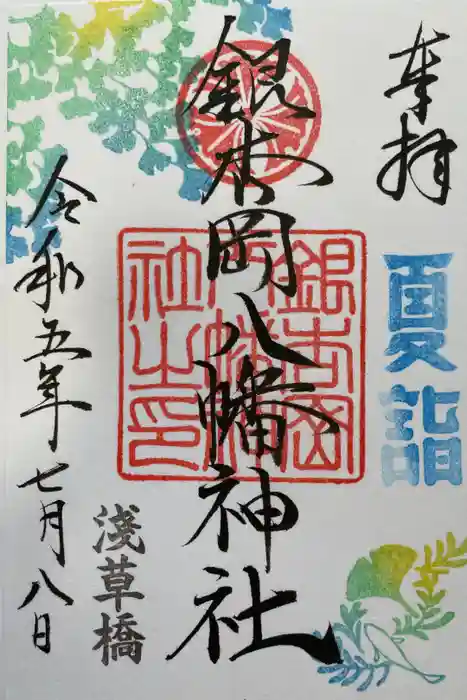 奉拝
夏詣
銀杏岡八幡神社
銀杏岡
八幡神
社之印
淺草橋
令和五年七月八日